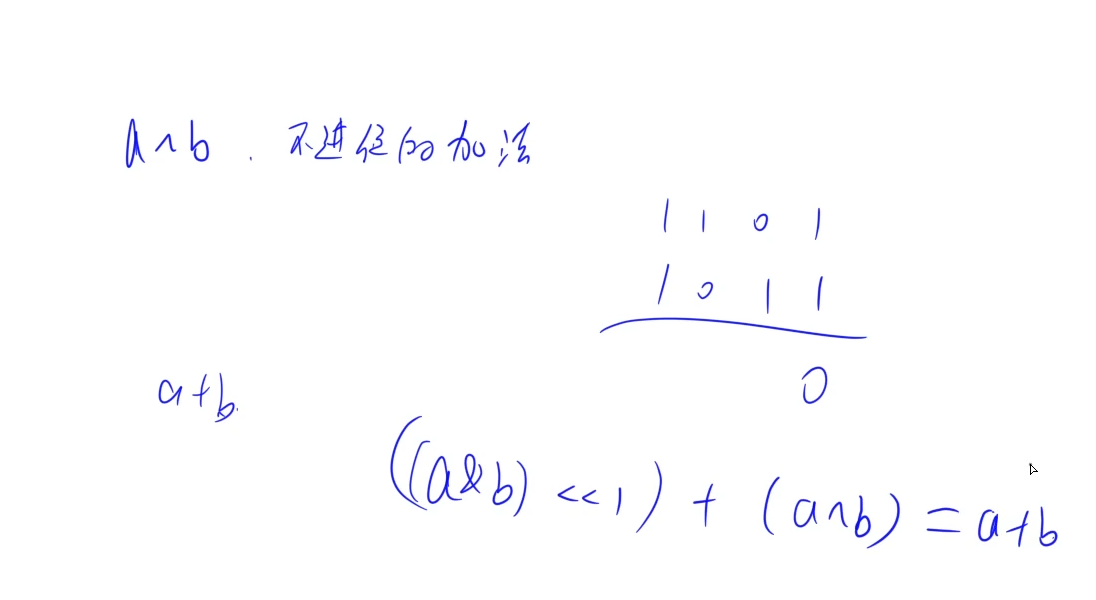 a^b . 不进位的加法
1 1 0 1
1 0 1 1
0
a+b.
((a&b) <<1) + (a^b) = a+b